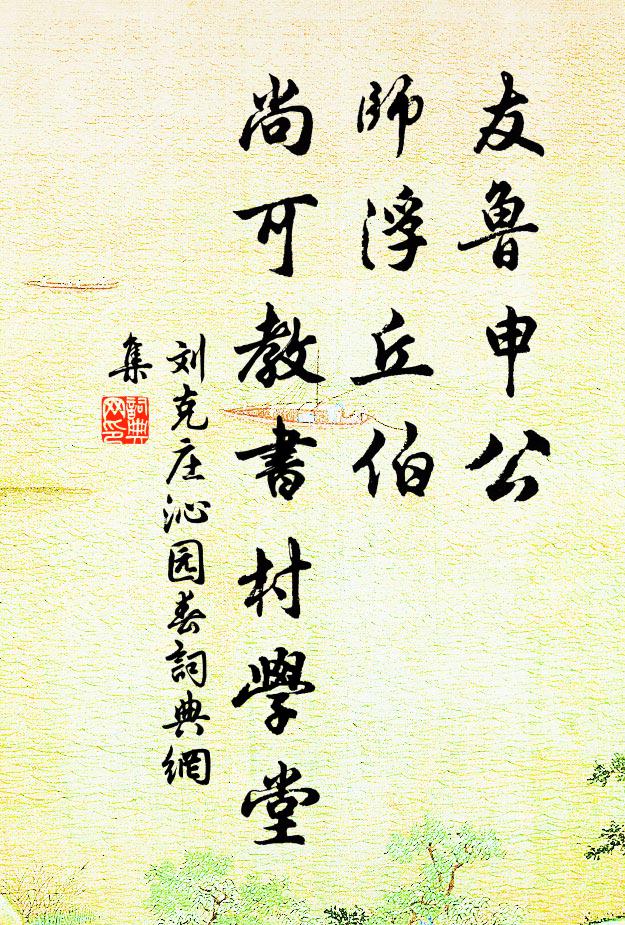 友魯申公
師浮丘伯
尚可教書村學堂
刘克庄沁园春詞典網
集
詞典
网印